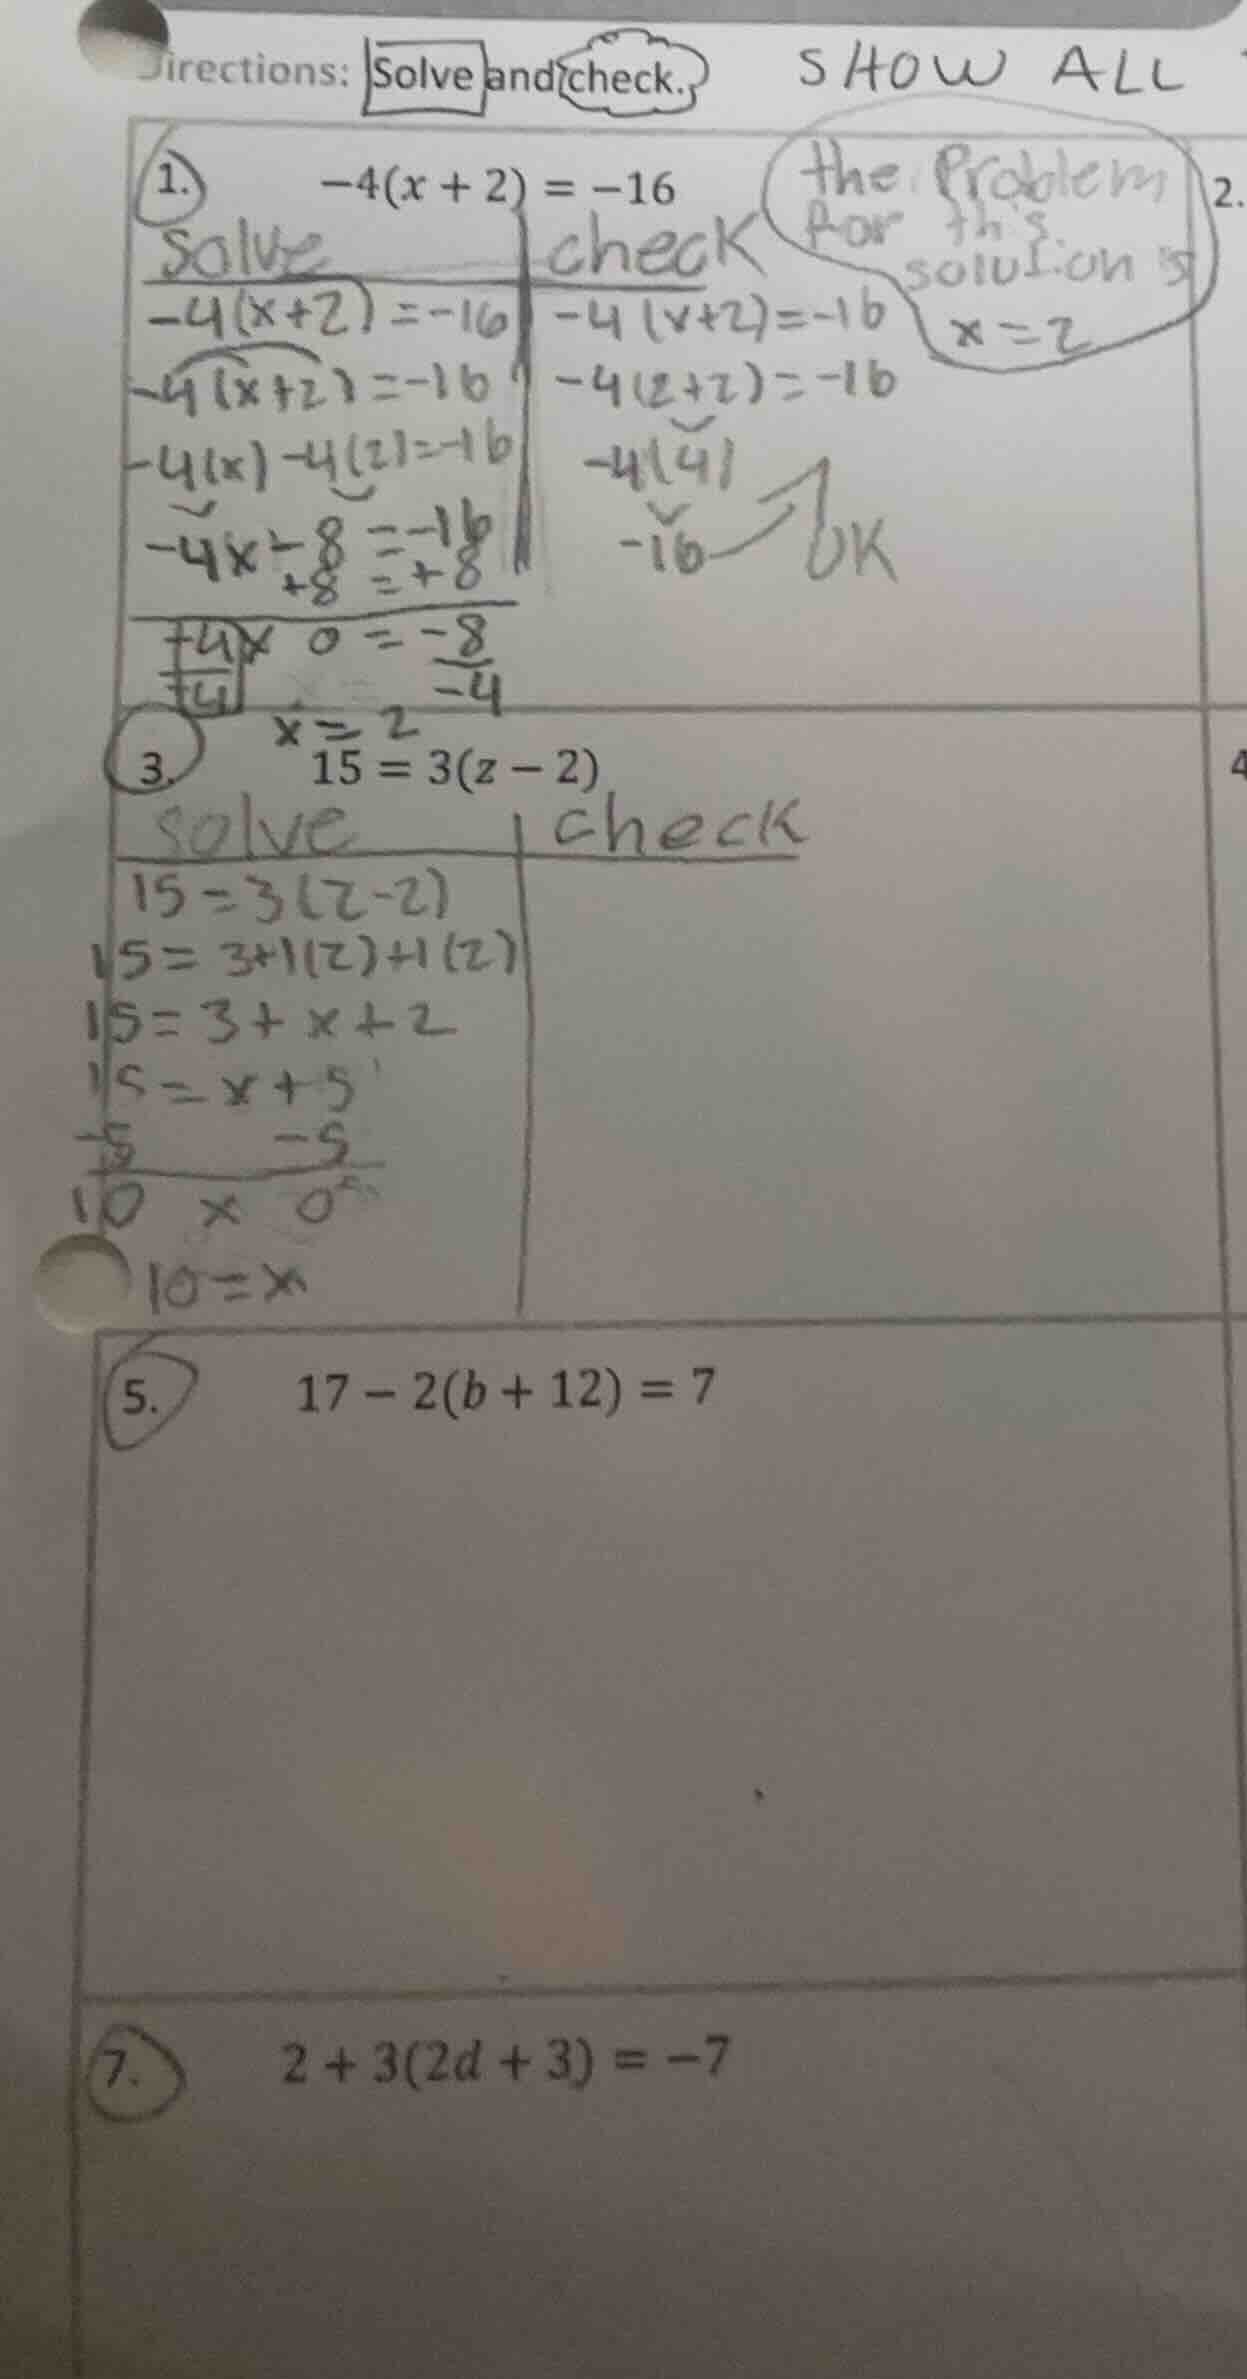 irections: Solve and check. SHOW ALL
1. −4(x + 2) = −16
the Problem
for this
solution is
x = 2
2.
solve check
-4(x+2) = -16
-4(x+2) = -16
-4(x) -4(2) = -16
-4x - 8 = -16
+8 = +8
-4x 0 = -8
-4 -4
x = 2
-4(x+2) = -16
-4(2+2) = -16
-4(4)
-16 OK
3. 15 = 3(z − 2)
4
solve check
15 = 3(z-2)
15 = 3+1(z)+1(2)
15 = 3 + x + 2
15 = x + 5
-5 -5
10 x 0
10 = x
5. 17 − 2(b + 12) = 7
7. 2 + 3(2d + 3) = −7